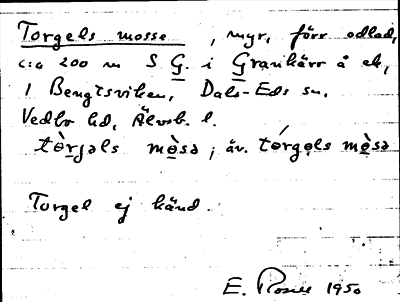 Torgels mosse, myr, förr odlad,
c:a 200 m S G. i Grankärr å ek,
1 Bengtsviken, Dals-Eds sn.
Vedbo hd, Älvsb. l.
tòrgals mòsa; äv. tórgels mòsa
Torgel ej känd.
E. Rosell 1950